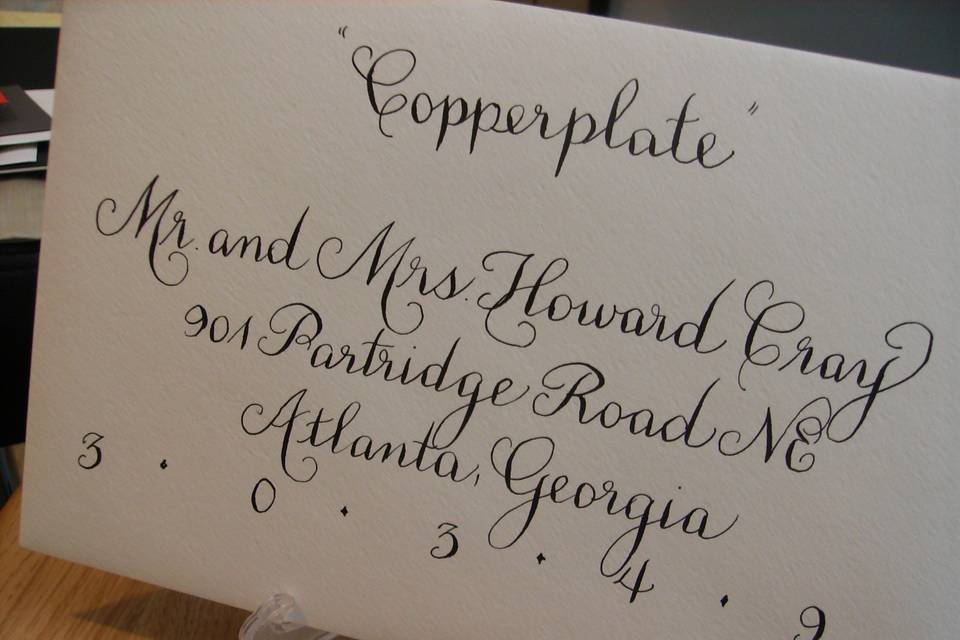 "Copperplate"
Mr. and Mrs. Howard Cray
901 Partridge Road NE
Atlanta, Georgia
3 · 0 · 3 · 4 · 9